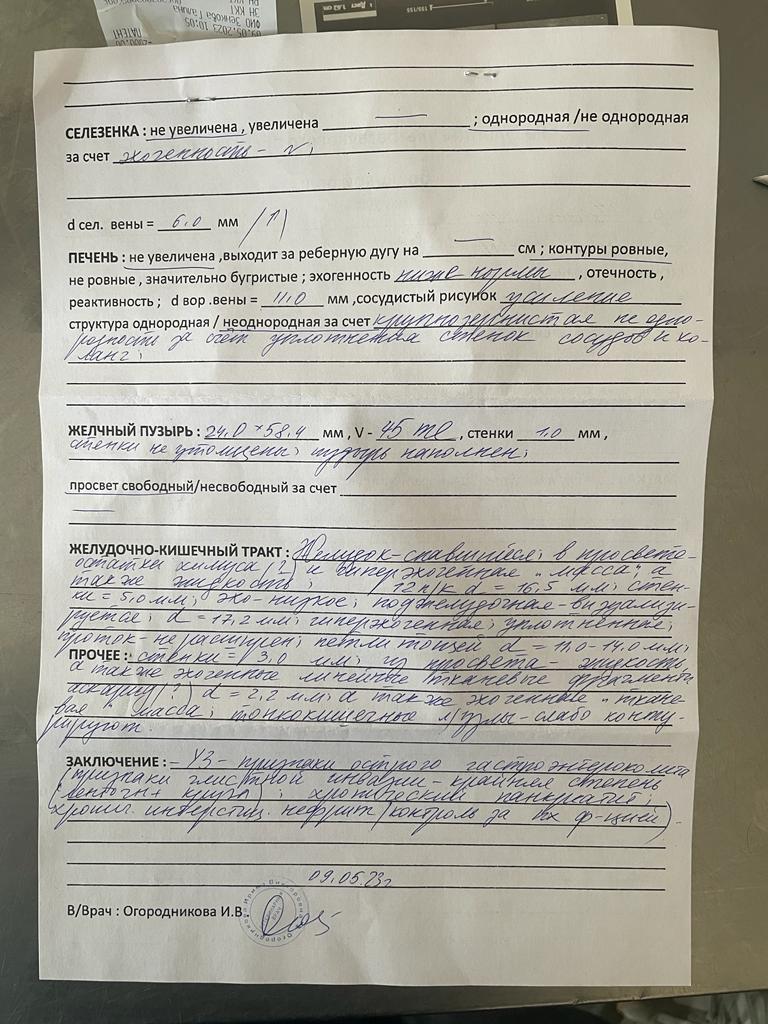 09.05.2023 10:05
СЕЛЕЗЕНКА : не увеличена , увеличена ; однородная /не однородная
за счет эхогенность - N;
d сел. вены = 6.0 мм /↑)
ПЕЧЕНЬ : не увеличена ,выходит за реберную дугу на см ; контуры ровные,
не ровные , значительно бугристые ; эхогенность ниже нормы , отечность ,
реактивность ; d вор .вены = 11.0 мм ,сосудистый рисунок усиление
структура однородная / неоднородная за счет крупнозернистая не одно-
родность за счёт уплотнения стенок сосудов и хо-
ланг;
ЖЕЛЧНЫЙ ПУЗЫРЬ : 24.0 × 58.4 мм , V - 45 ml , стенки 1.0 мм ,
стенки не утолщены; пузырь наполнен;
просвет свободный/несвободный за счет
ЖЕЛУДОЧНО-КИШЕЧНЫЙ ТРАКТ : Желудок-спавшийся; в просвете-
остатки химуса (?) и гиперэхогенная "масса", а
также жидкость; 12 п/к d = 16,5 мм; стен-
ки = 5,0 мм; эхо-низкое; поджелудочная-визуализи-
руется; d = 17,2 мм; гиперэхогенная; уплотненная;
проток-не расширен; петли тощей d = 11,0-14,0 мм;
ПРОЧЕЕ : стенки = 3,0 мм; из просвета- жидкость,
а также эхогенные линейные тканевые фрагменты
аскарид (?) d = 2,2 мм; а также эхогенные "ткане-
вая" масса; тонкокишечные л/узлы-слабо конту-
рируют.
ЗАКЛЮЧЕНИЕ : - УЗ - признаки острого гастроэнтероколита
(признаки глистной инвазии - крайняя степень
; хронический панкреатит;
хронич. интерстиц. нефрит (контроль за их ф-цией)
09.05.23г
В/Врач : Огородникова И.В.